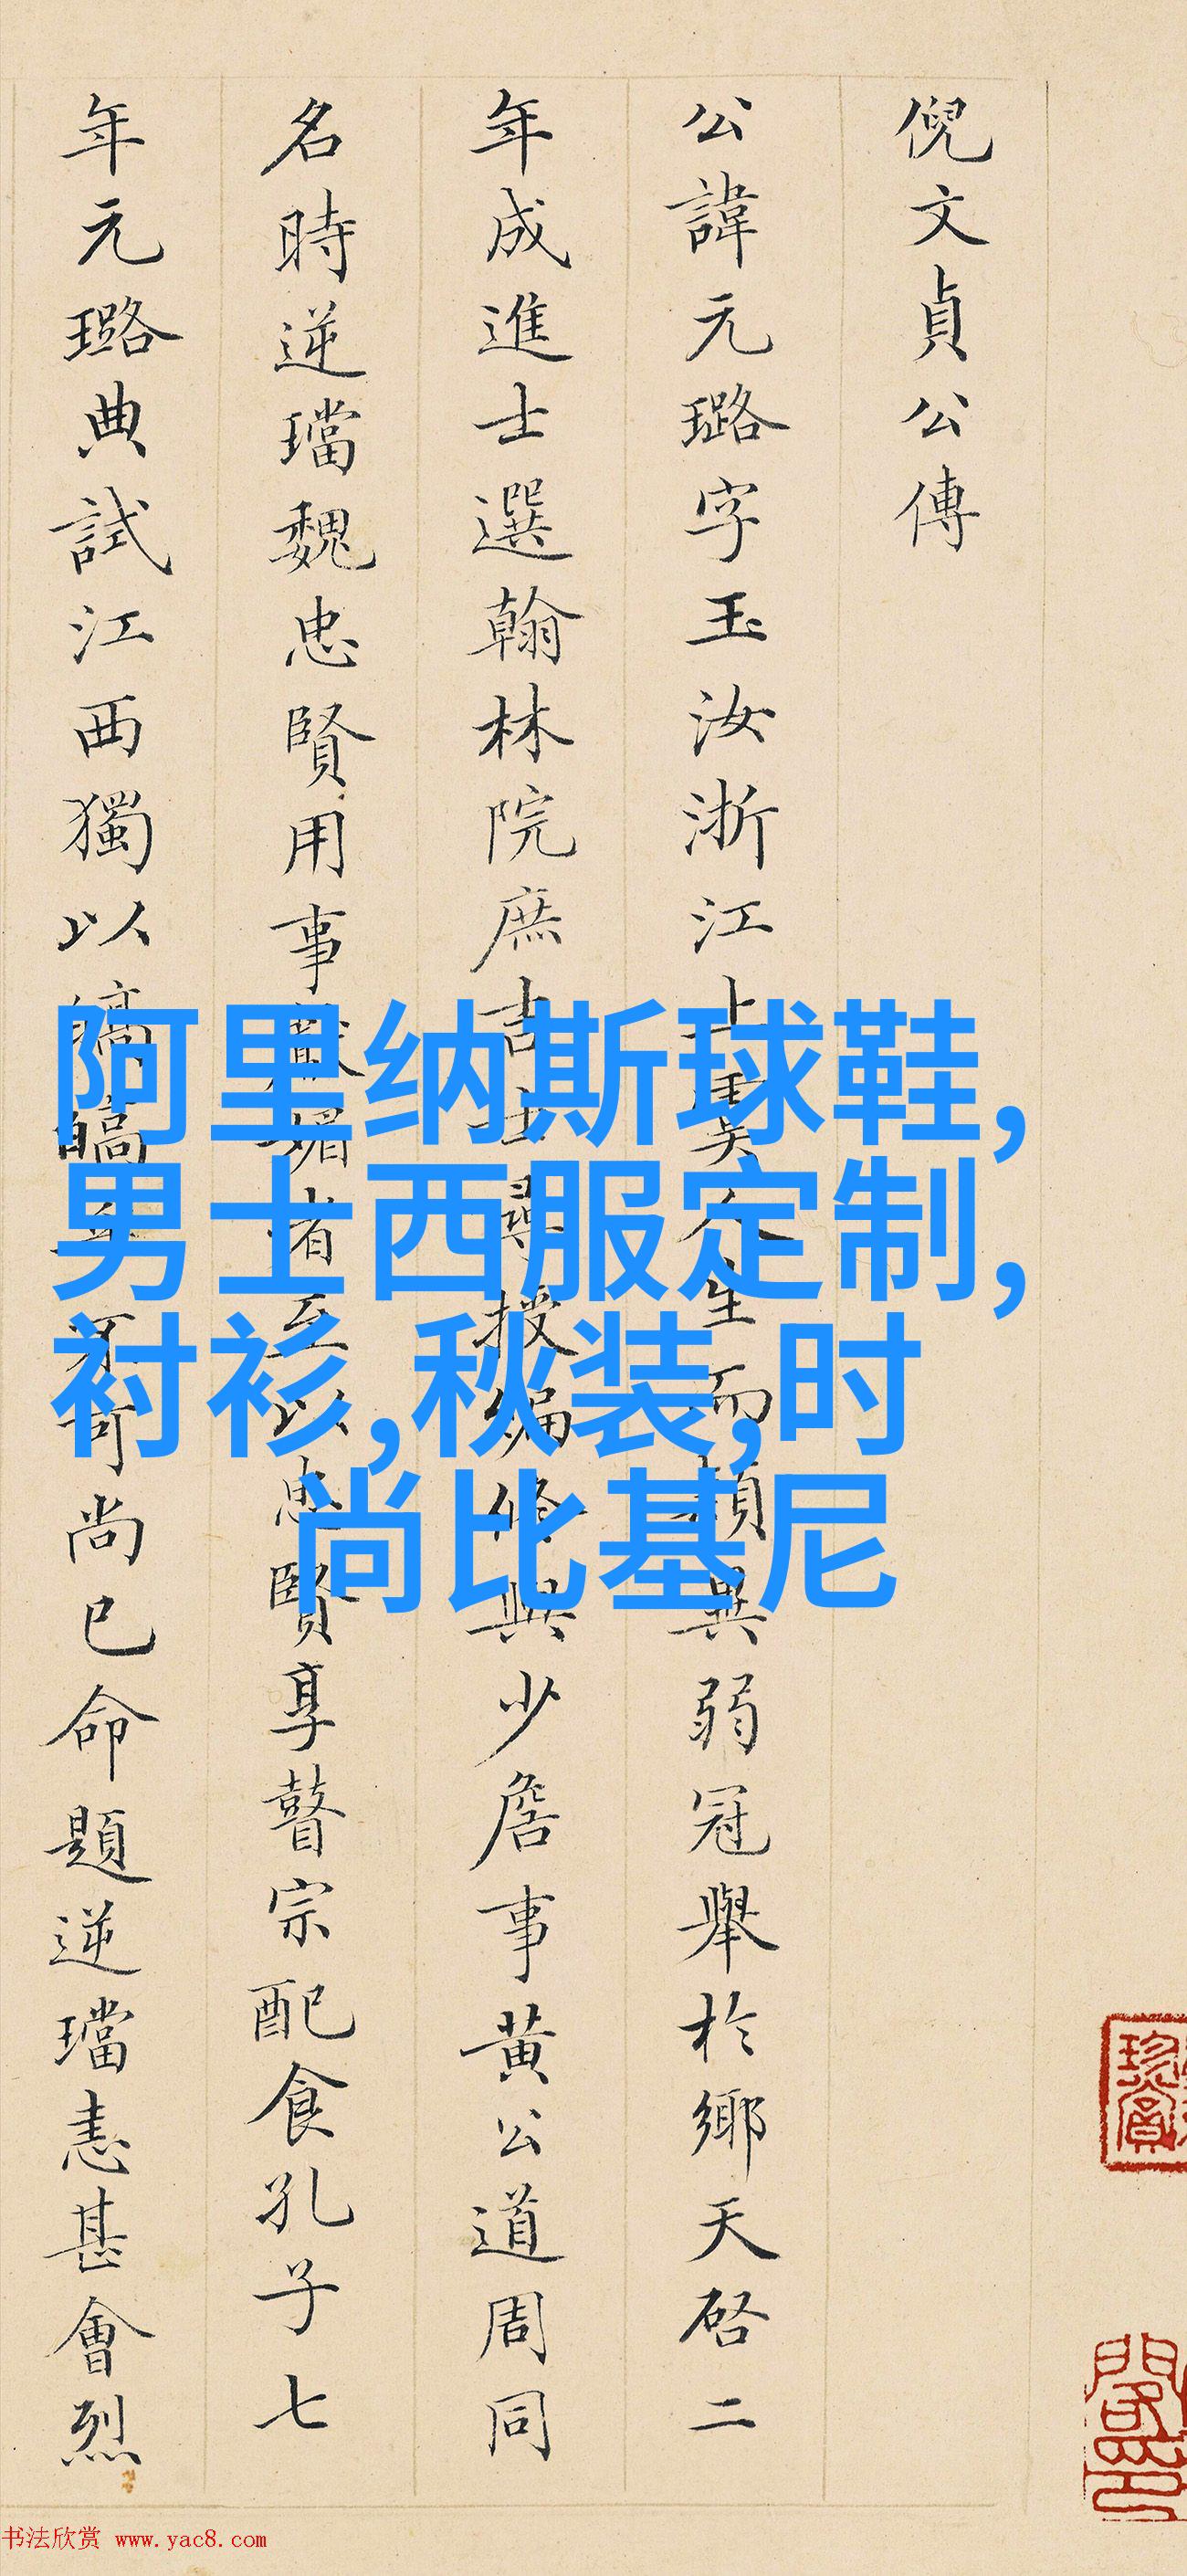 倪文貞公傳
公諱元璐字玉汝浙江上虞人生而穎異弱冠舉於鄉天啓二
年成進士選翰林院庶吉士尋授編修與少詹事黃公道周同
名時逆璫魏忠賢用事獻媚者至以忠賢享瞽宗配食孔子七
年元璐典試江西獨以皜皜乎不可尚已命題逆璫恚甚會烈
阿里纳斯球鞋,
男士西服定制,
衬衫,秋装,时
尚比基尼
珍賞
书法欣赏 www.yac8.com